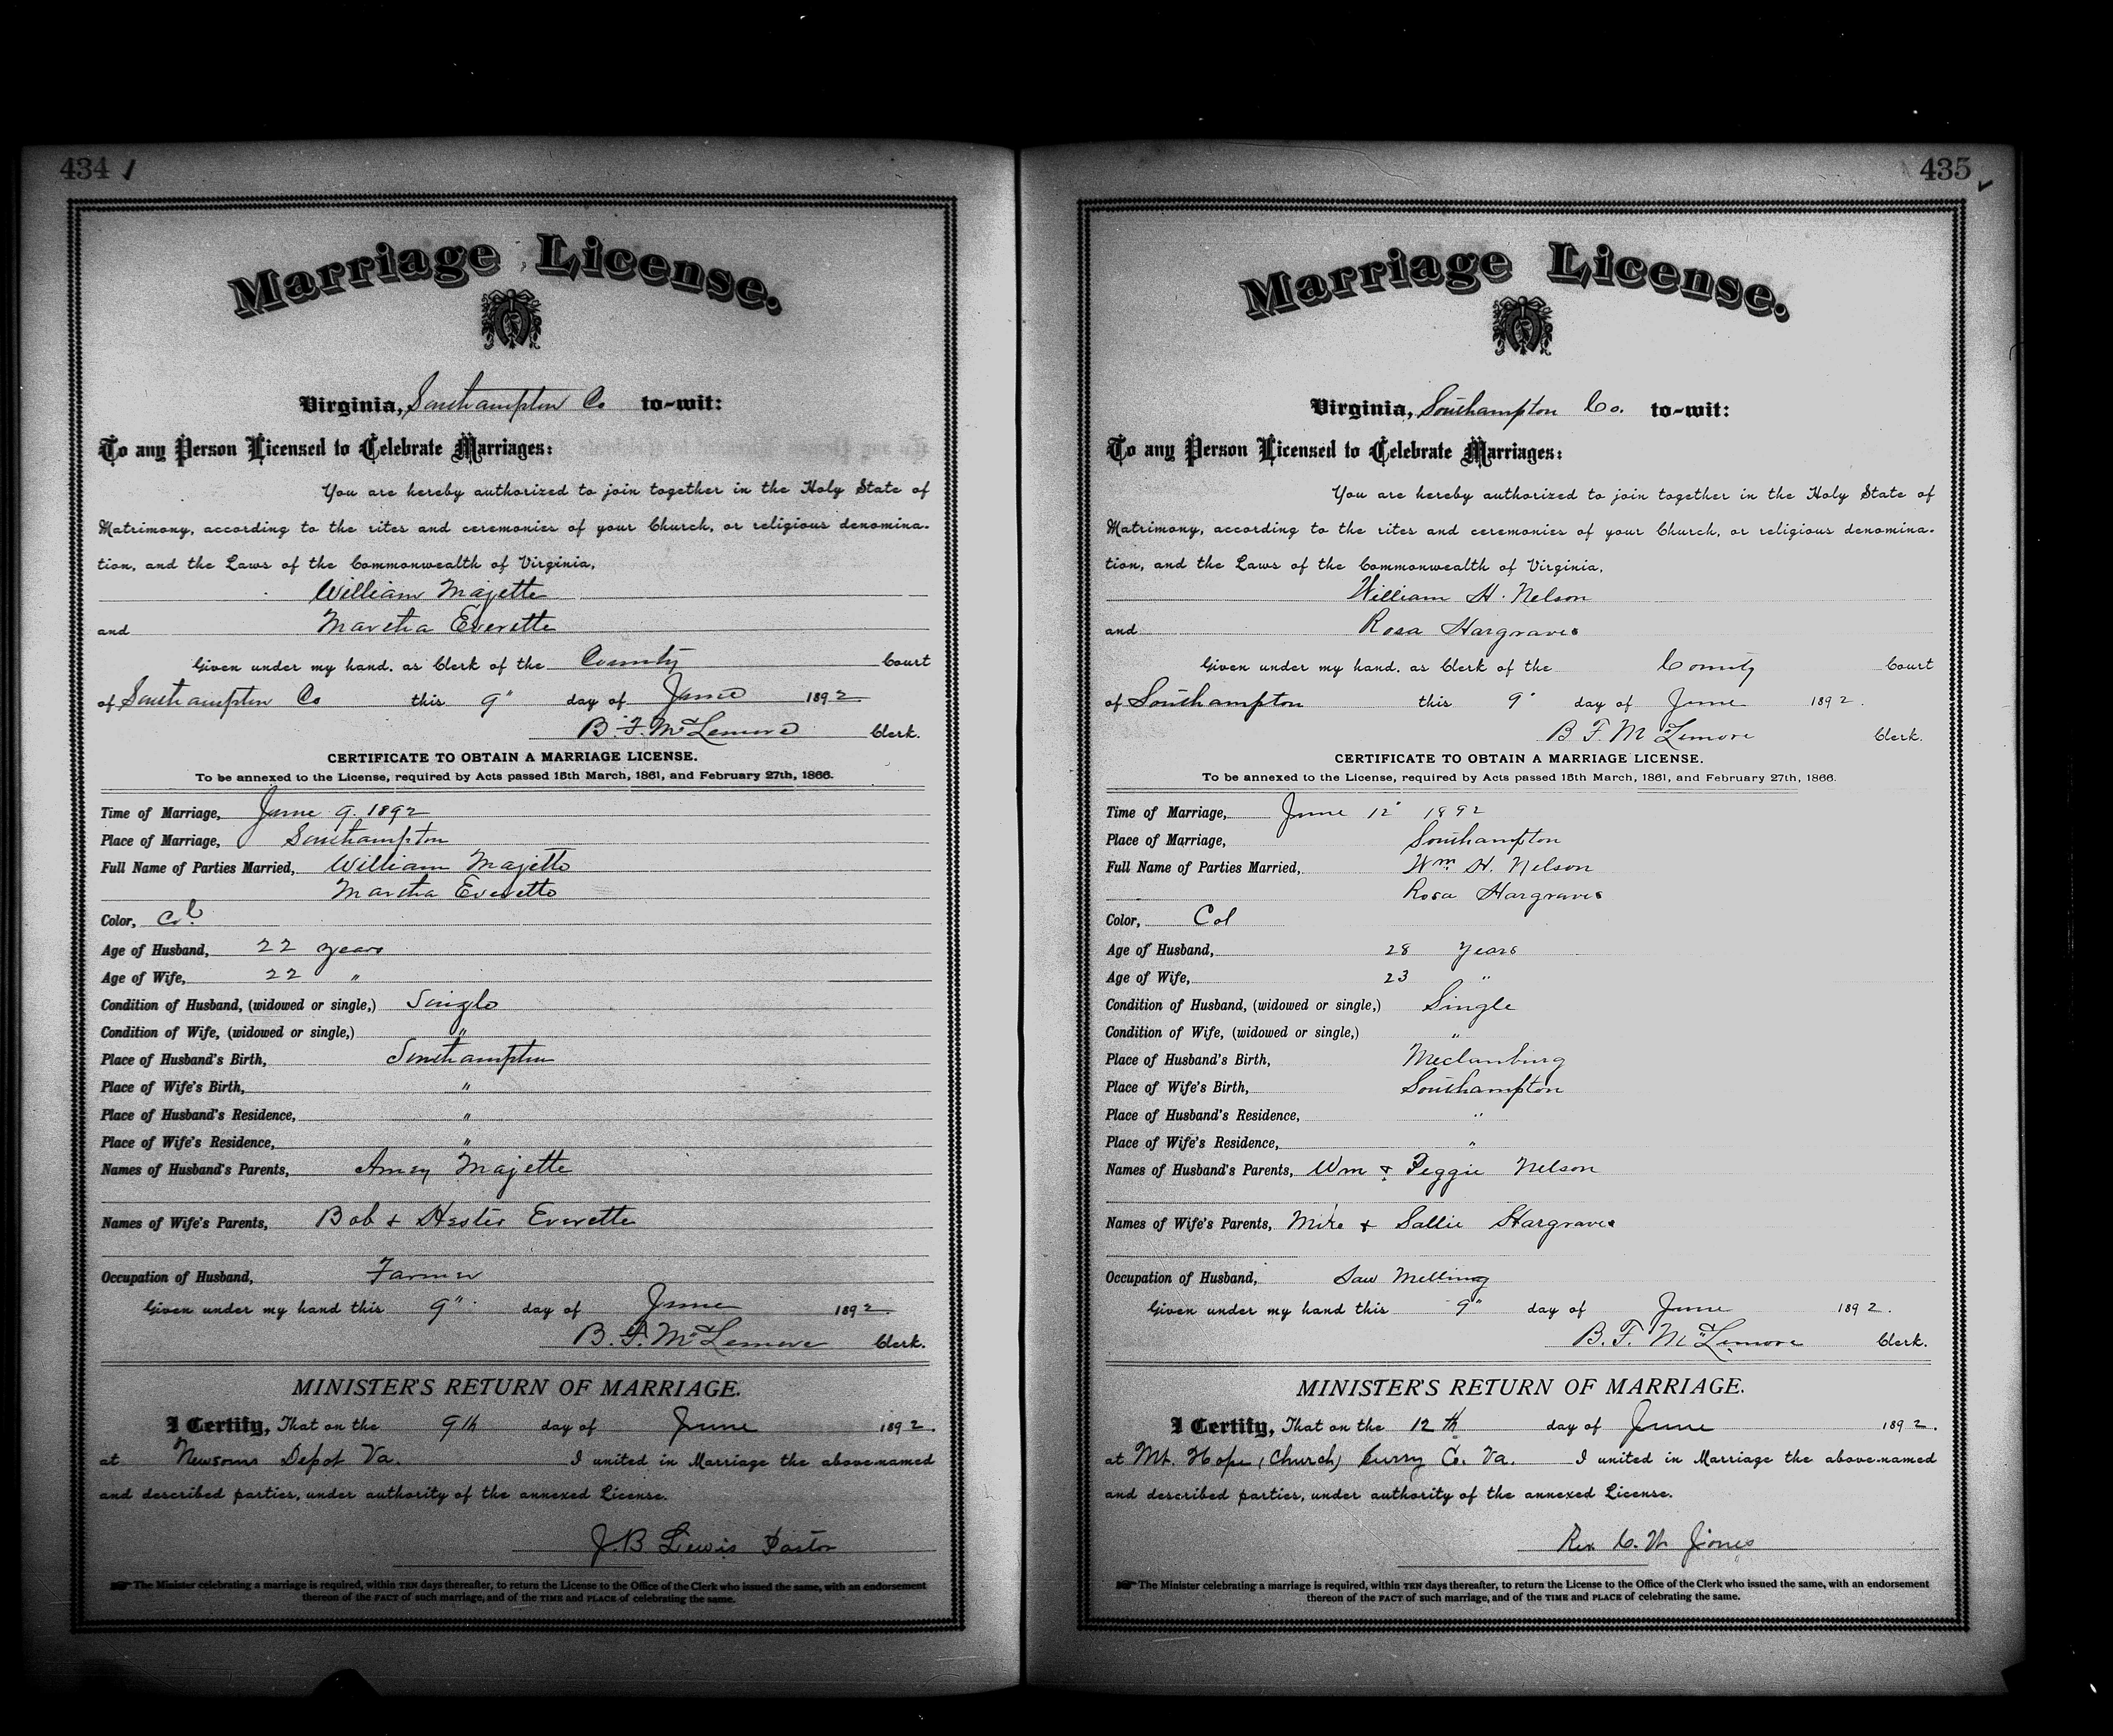 434
Marriage License.
Virginia, Southampton Co to-wit:
To any Person Licensed to Celebrate Marriages:
You are hereby authorized to join together in the Holy State of
Matrimony, according to the rites and ceremonies of your Church, or religious denomina-
tion, and the Laws of the Commonwealth of Virginia,
William Majette
and Martha Everette
Given under my hand, as Clerk of the County Court
of Southampton Co this 9" day of June 1892
B. F. McLemore Clerk.
CERTIFICATE TO OBTAIN A MARRIAGE LICENSE.
To be annexed to the License, required by Acts passed 15th March, 1861, and February 27th, 1866.
Time of Marriage, June 9. 1892
Place of Marriage, Southampton
Full Name of Parties Married, William Majette
Martha Everette
Color, Col
Age of Husband, 22 years
Age of Wife, 22 "
Condition of Husband, (widowed or single,) Single
Condition of Wife, (widowed or single,) "
Place of Husband's Birth, Southampton
Place of Wife's Birth, "
Place of Husband's Residence, "
Place of Wife's Residence, "
Names of Husband's Parents, Amey Majette
Names of Wife's Parents, Bob & Hester Everette
Occupation of Husband, Farmer
Given under my hand this 9" day of June 1892.
B. F. McLemore Clerk.
MINISTER'S RETURN OF MARRIAGE.
I Certify, That on the 9th day of June 1892.
at Newsoms Depot Va. I united in Marriage the above-named
and described parties, under authority of the annexed License.
J. B Lewis Pastor
The Minister celebrating a marriage is required, within TEN days thereafter, to return the License to the Office of the Clerk who issued the same, with an endorsement
thereon of the FACT of such marriage, and of the TIME and PLACE of celebrating the same.
435
Marriage License.
Virginia, Southampton Co. to-wit:
To any Person Licensed to Celebrate Marriages:
You are hereby authorized to join together in the Holy State of
Matrimony, according to the rites and ceremonies of your Church, or religious denomina-
tion, and the Laws of the Commonwealth of Virginia,
William H. Nelson
and Rosa Hargraves
Given under my hand, as Clerk of the County Court
of Southampton this 9" day of June 1892.
B F. McLemore Clerk.
CERTIFICATE TO OBTAIN A MARRIAGE LICENSE.
To be annexed to the License, required by Acts passed 15th March, 1861, and February 27th, 1866.
Time of Marriage, June 12" 1892
Place of Marriage, Southampton
Full Name of Parties Married, Wm. H. Nelson
Rosa Hargraves
Color, Col
Age of Husband, 28 Years
Age of Wife, 23 "
Condition of Husband, (widowed or single,) Single
Condition of Wife, (widowed or single,) "
Place of Husband's Birth, Meclanburg
Place of Wife's Birth, Southampton
Place of Husband's Residence, "
Place of Wife's Residence, "
Names of Husband's Parents, Wm & Peggie Nelson
Names of Wife's Parents, Mike & Sallie Hargraves
Occupation of Husband, Saw Milling
Given under my hand this 9" day of June 1892.
B. F. McLemore Clerk.
MINISTER'S RETURN OF MARRIAGE.
I Certify, That on the 12th day of June 1892.
at Mt. Hope (Church) Surry Co. Va. I united in Marriage the above-named
and described parties, under authority of the annexed License.
Rev. C. W Jones
The Minister celebrating a marriage is required, within TEN days thereafter, to return the License to the Office of the Clerk who issued the same, with an endorsement
thereon of the FACT of such marriage, and of the TIME and PLACE of celebrating the same.